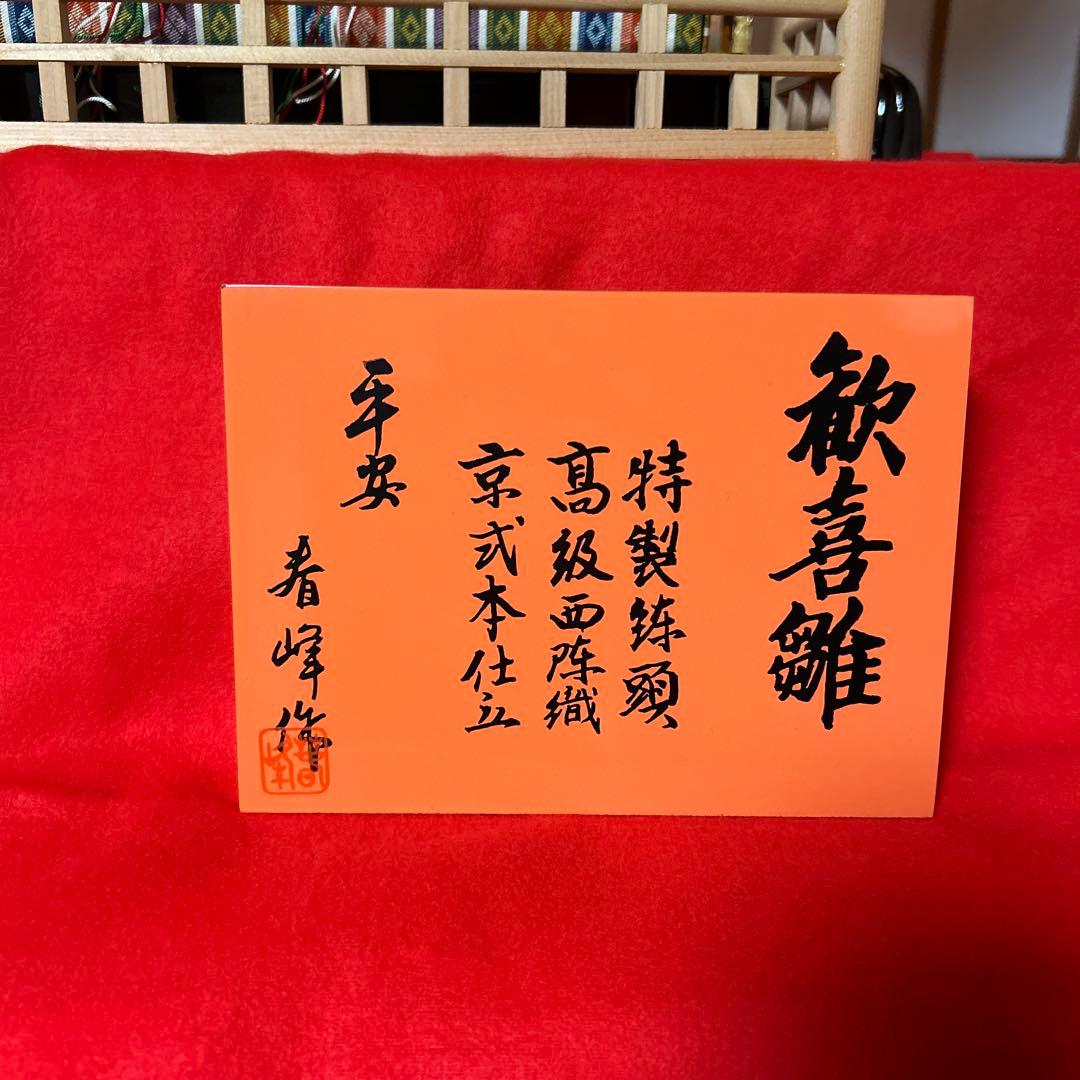 歓喜雛
特製錬頭
高級西陣織
京式本仕立
平安
春峰作